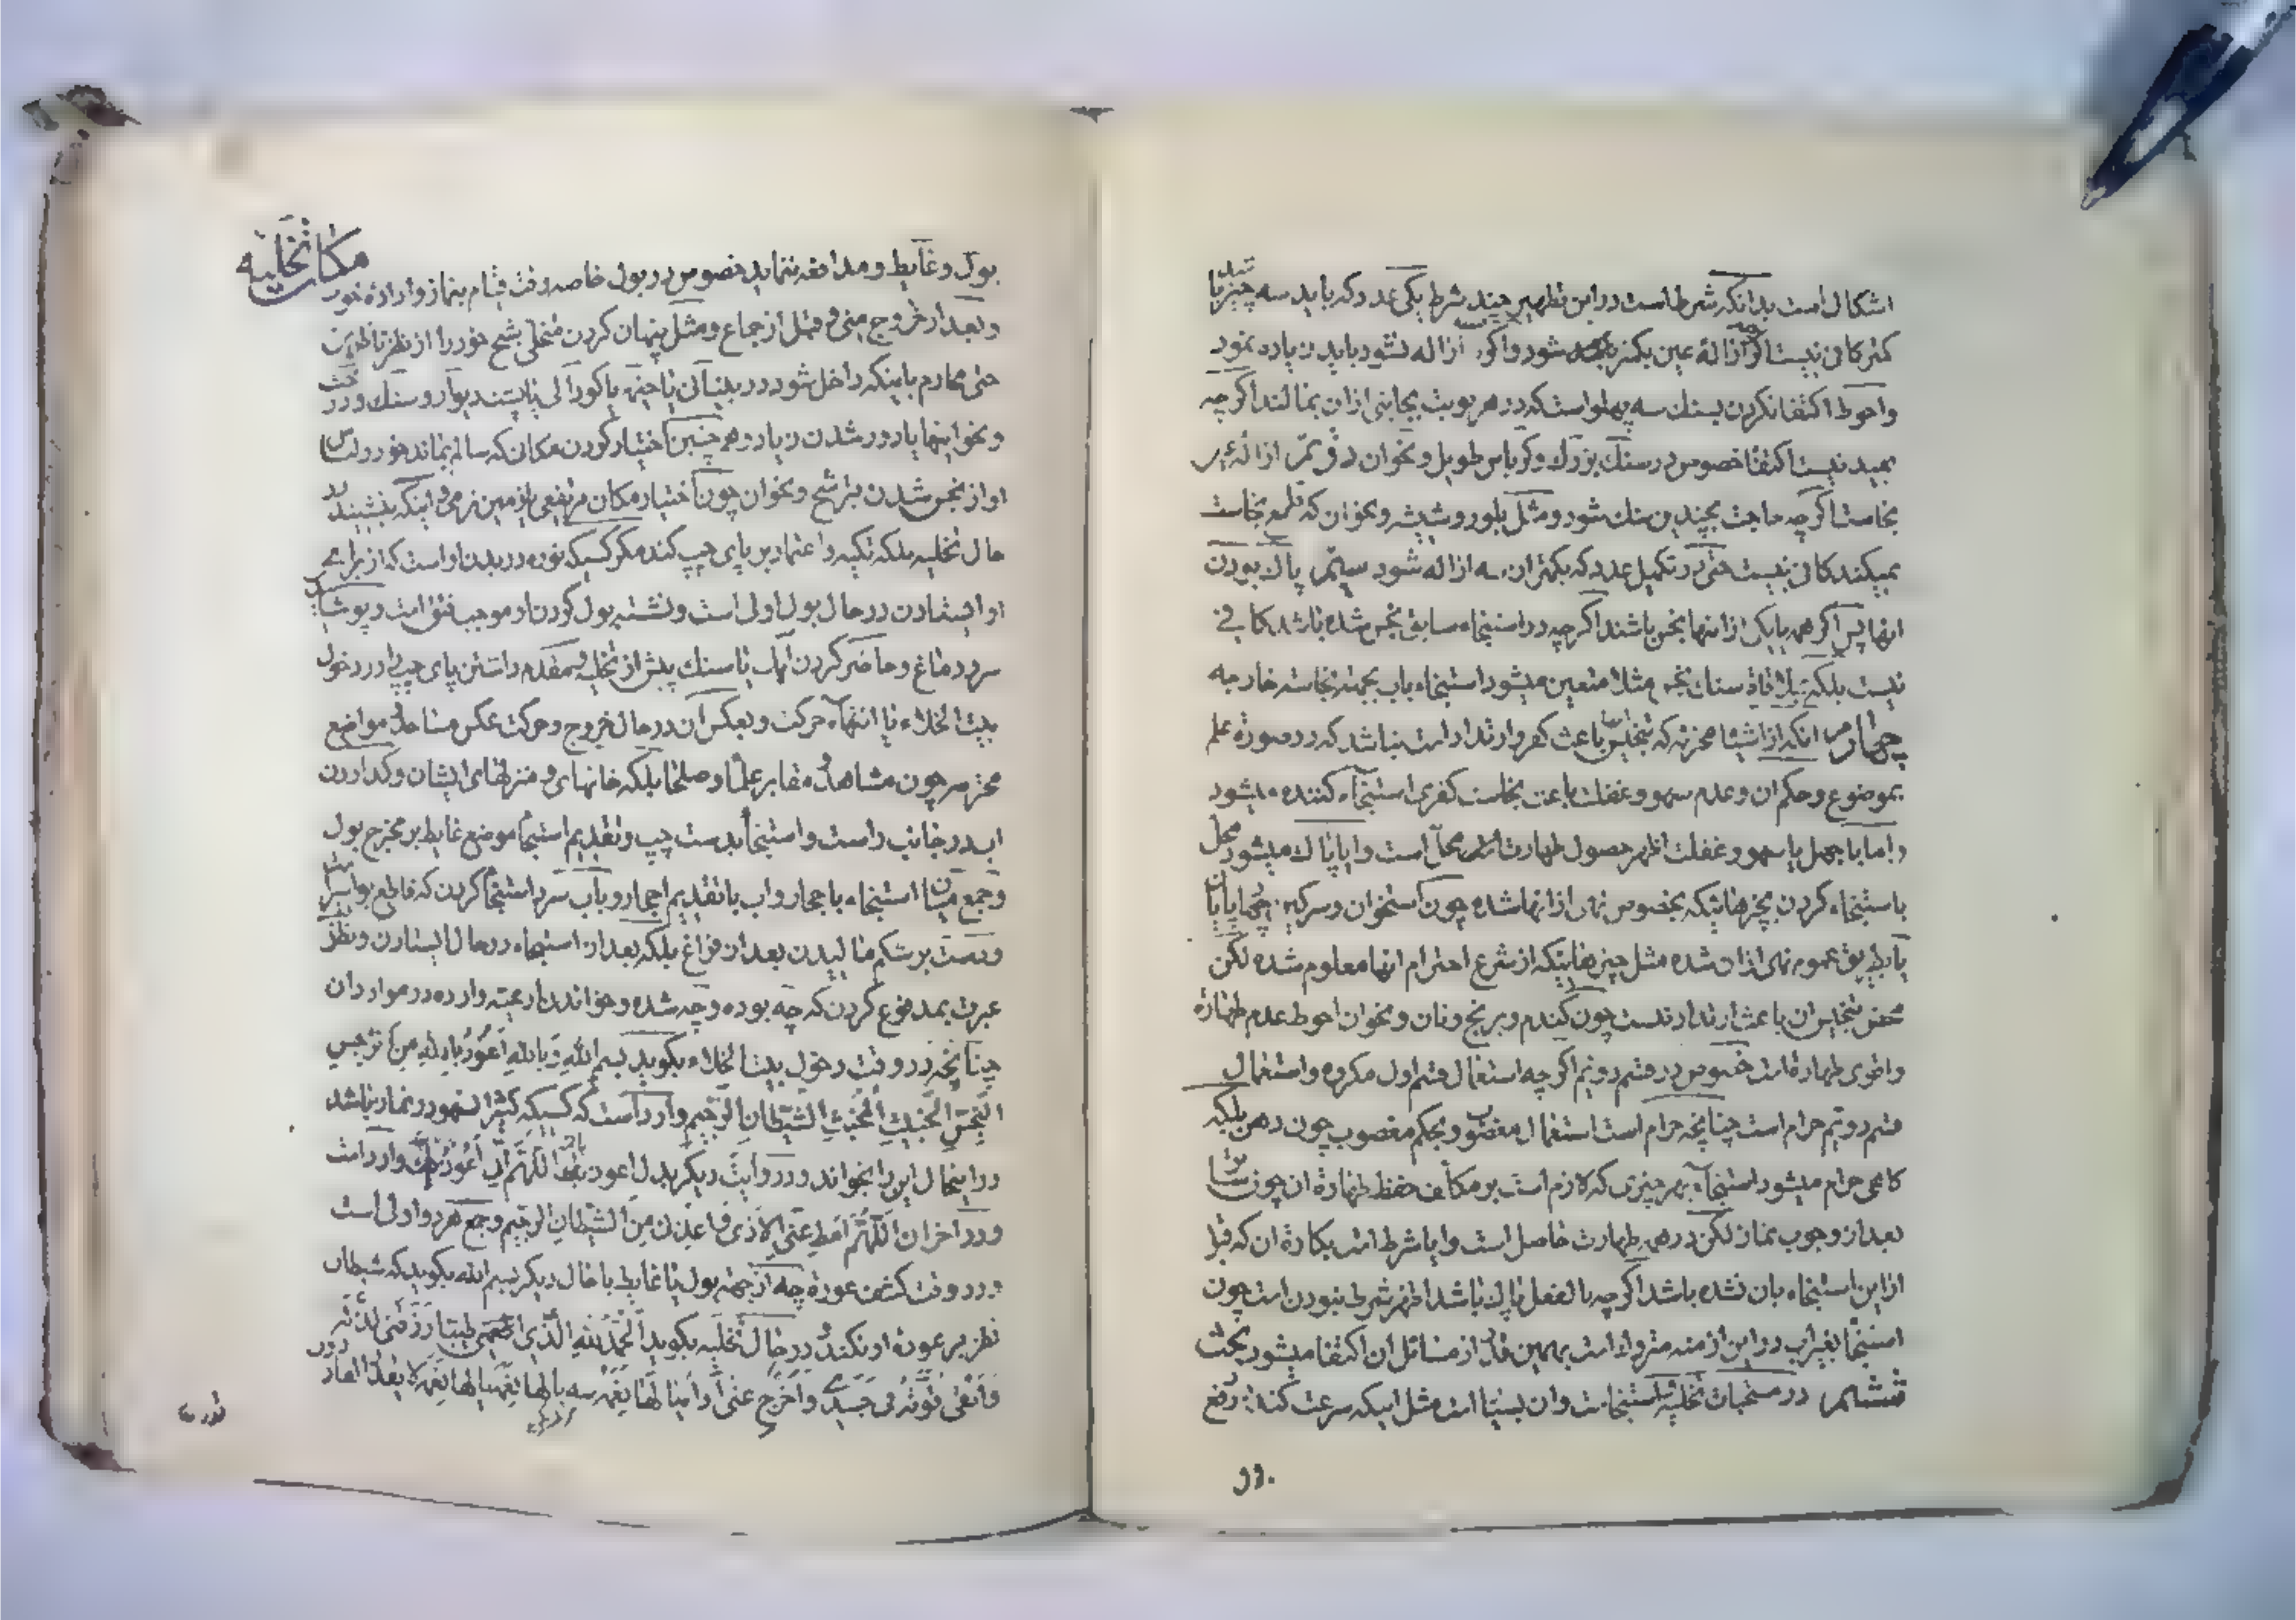 اشکال است بدانکه شرط است در این تطهیر چند شرط یکی عدد که باید سه چیز یا
کمتر کافی نیست اکر ازالهٔ عین بکمتر شود و اکر ازاله نشود باید زیاده نمود
و احوط اکتفا نکردن بسنك سه پهلو است که در هر نوبت بجانبی از ان بمالند اکرچه
بعید نیست اکتفا خصوص در سنك بزرك و کرباس طویل و نحو ان
نجاست اکرچه حاجت بچندین سنك شود و مثل بلور و شیشه و نحو ان که قلع نجاست
نمیکند کافی نیست حتی در تکمیل عدد که بکمتر ان ازاله شود سیّم پاك بودن
انها پس اکر همه یا یکی از اینها نجس باشند اکرچه در استنجاء سابق نجس شده باشد کافی
نیست بلکه بملاقاة سنك نجس مثلا متعین میشود استنجاء باب بجهته نجاسته خارجه
چهارم انکه از اشیاء محترمه که تنجیس باعث کفر و ارتداد است نباشد که در صورة علم
بموضوع و حکم ان و عدم سهو و غفلت باعث نجاست کفری استنجاء کننده میشود
و اما با جهل یا سهو و غفلت اظهر حصول طهارت محل است و ایا پاك میشود محل
باستنجاء کردن بچیزهائیکه بخصوص نهی از انها شده چون استخوان و سرکین
یا بطریق عموم نهی از ان شده مثل چیزهائیکه از شرع احترام انها معلوم شده لکن
محض تنجیس ان باعث ارتداد نیست چون کندم و برنج و نان و نحو ان احوط عدم طهارة
و اقوی طهارة است خصوص در قسم دویم اکرچه استعمال قسم اول مکروه و استعمال
قسم دویم حرام است چنانچه حرام است استعمال مغصوب و بحکم مغصوب چون رهن بلکه
کاهی حرام میشود استنجاء بهر چیزی که لازم است بر مکلف حفظ طهارة ان چون
بعد از وجوب نماز لکن در همه طهارت حاصل است و ایا شرط است بکارة ان که قبل
از این استنجاء بان نشده باشد اکرچه بالفعل پاك باشد اظهر شرط نبودن است چون
استنجا بغیر اب در این ازمنه متروك است بهمین قدر از مسائل ان اکتفا میشود بحث
ششم در مستحبات تخلیه و استنجاست و ان بسیار است مثل اینکه سرعت کند در رفع
مکان تخلیه
بول و غایط و مدافعه ننماید خصوص در بول خاصه وقت قیام بنماز و اراده خوب
و بعد از خروج منی و قبل از جماع و مثل پنهان کردن متخلی شبح خود را از نظر ناظرین
حتی محارم باینکه داخل شود در بنیانی یا خیمه یا کودالی یا پشت دیوار و سنك و درخت
و نحو اینها یا دور شدن زیاد و همچنین اختیار کردن مکان که سالم بماند خود و لباس
او از نجس شدن بترشح و نحو ان چون اختیار مکان مرتفعی یا زمین نرمی و اینکه بنشیند در
حال تخلیه بلکه تکیه و اعتماد بر پای چپ کند مکر کسیکه نوره در بدن او است که از برای
او ایستادن در حال بول اولی است و نشسته بول کردن او موجب فتق است و پوشانیدن
سر و دماغ و حاضر کردن اب یا سنك پیش از تخلیه و مقدم داشتن پای چپ را در دخول
بیت الخلاء یا انتهاء حرکت و بعکس ان در حال خروج و حرکت عکس مساجد و مواضع
محترمه چون مشاهد و مقابر علما و صلحا بلکه خانهای و منزلهای ایشان و کذاردن
اب در جانب راست و استنجا بدست چپ و تقدیم استنجا موضع غایط بر مخرج بول
و جمع میان استنجاء باحجار و اب با تقدیم احجار و باب سرد استنجا کردن که قاطع بواسیر است
و دست بر شکم مالیدن بعد از فراغ بلکه بعد از استنجاء در حال ایستادن و نظر
عبرت بمدفوع کردن که چه بوده و چه شده و خواندن ادعیه وارده در موارد ان
چنانچه در وقت دخول بیت الخلاء بکوید بسم الله و بالله اعوذ بالله من الرجس
النجس الخبیث المخبث الشیطان الرجیم و وارد است که کسیکه کثیر السهو در نماز باشد
در اینحال این را بخواند و در روایت دیکر بدل اعوذ بالله اللهم انی اعوذ بك وارد است
و در اخر ان اللهم امط عنی الاذی و اعذنی من الشیطان الرجیم و جمع هر دو اولی است
و در وقت کشف عورة چه از جهته بول یا غایط یا حال دیکر بسم الله بکوید که شیطان
نظر بر عورة او نکند و در حال تخلیه بکوید الحمد لله الذی اطعمنی طیبا
و ابقی قوته فی جسدی و اخرج عنی اذاه یا لها نعمة سه بار یا لها نعمة یا لها نعمة لا یقدر القادرون